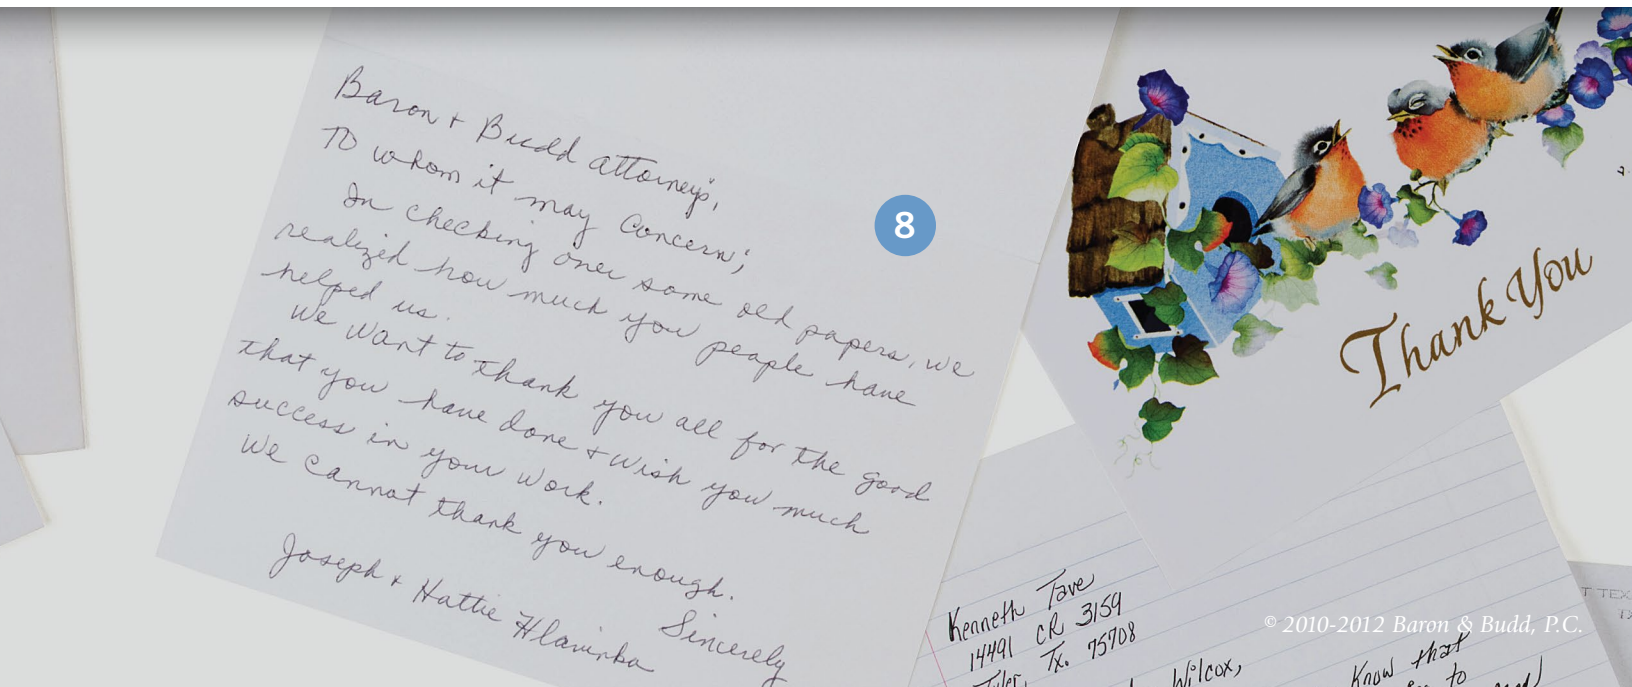 Baron + Budd attorney's,
To whom it may Concern;
In checking over some old papers, we
realized how much you people have
helped us.
We want to thank you all for the good
that you have done + wish you much
success in your work.
We cannot thank you enough.
Sincerely
Joseph + Hattie Hlavinka
8
Thank You
Kenneth Tave
14491 CR 3159
Tyler, Tx. 75708
Wilcox,
Know that
to
T TEX
© 2010-2012 Baron & Budd, P.C.